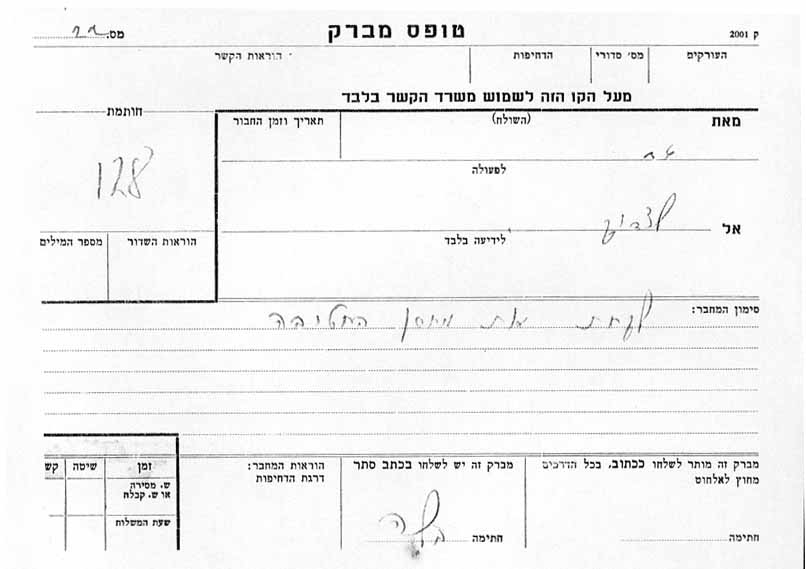 ק 2001
טופס מברק
מס.
העורקים
מס׳ סדורי
הדחיפות
הוראות הקשר
מעל הקו הזה לשמוש משרד הקשר בלבד
מאת
(השולח)
תאריך וזמן החבור
חותמת
לפעולה
אל
לידיעה בלבד
הוראות השדור
מספר המילים
סימון המחבר:
לקחת את מחסן החטיבה
מברק זה מותר לשלחו ככתוב, בכל הדרכים
מחוץ לאלחוט
חתימה
מברק זה יש לשלחו בכתב סתר
חתימה
הוראות המחבר:
דרגת הדחיפות
זמן
שיטה
קש
ש. מסירה
או ש. קבלה
שעת המשלוח